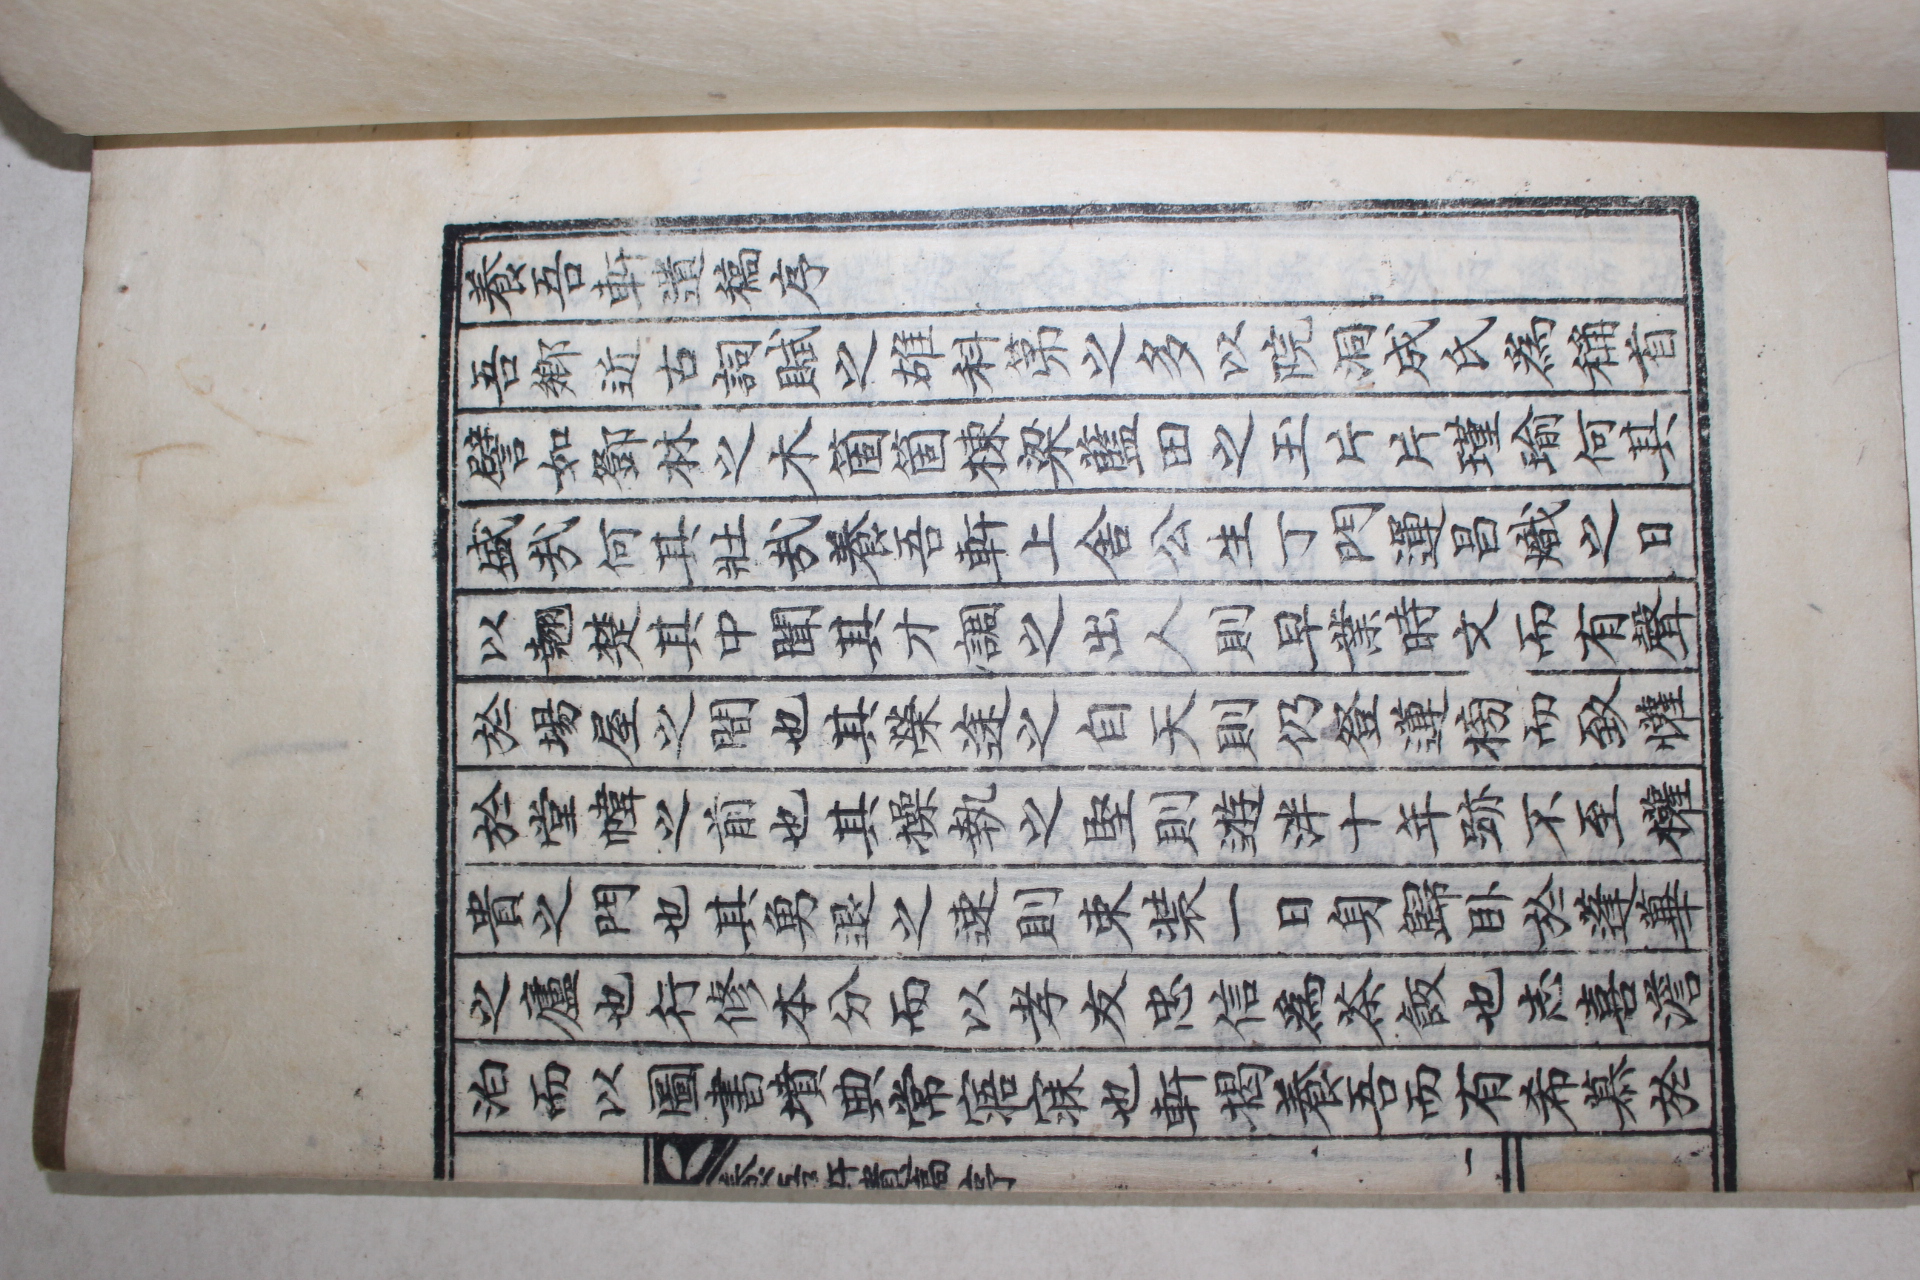 養吾軒遺稿序
吾鄕近古詞賦之雄科第之多以院洞成氏爲稱首
譬如鄧林之木箇箇棟梁藍田之玉片片瑾瑜何其
盛哉何其壯哉養吾軒上舍公生丁門運昌熾之日
以翹楚其中聞其才調之出人則早業時文而有聲
於場屋之間也其榮途之自天則仍登蓮榜而致懽
於堂幃之前也其操執之堅則遊泮十年跡不至權
貴之門也其勇退之速則束裝一日身歸臥於蓬蓽
之廬也行修本分而以孝友忠信爲茶飯也志喜澹
泊而以圖書墳典常寤寐也軒揭養吾而有希慕於
養吾軒遺稿序
一